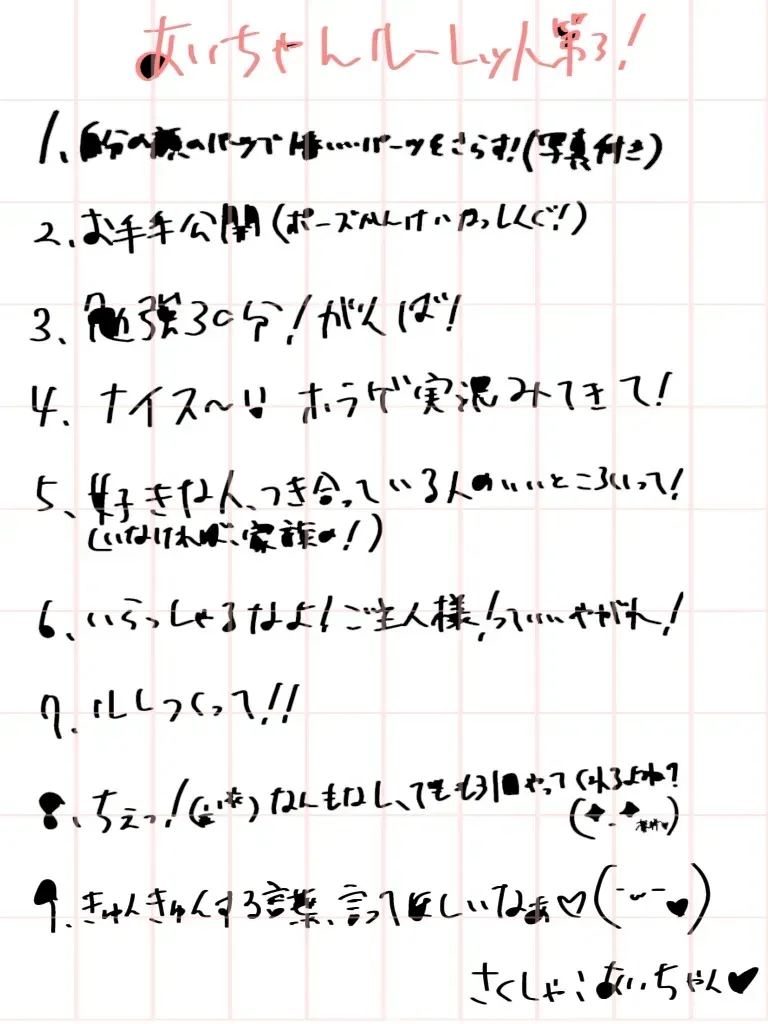 あいちゃんルーレット第3!
1、自分の顔のパーツで推しパーツをさらす!(写真付き)
2、お手手公開(ポーズかんけいなっしんぐ!)
3、勉強30分!がんば!
4、ナイス〜!! ホラゲ実況みてきて!
5、好きな人、つき合っている人のいいところいって!
(いなければ、家族の!)
6、いらっしゃるなよ!ご主人様!っていいやがれ!
7、ルレつくって!!
8、ちぇっ! なんもなし、でももう1回やってくれるよね?
9、きゅんきゅんする言葉、言ってほしいなぁ♡(˘⌣˘♥)
さくしゃ:あいちゃん♥